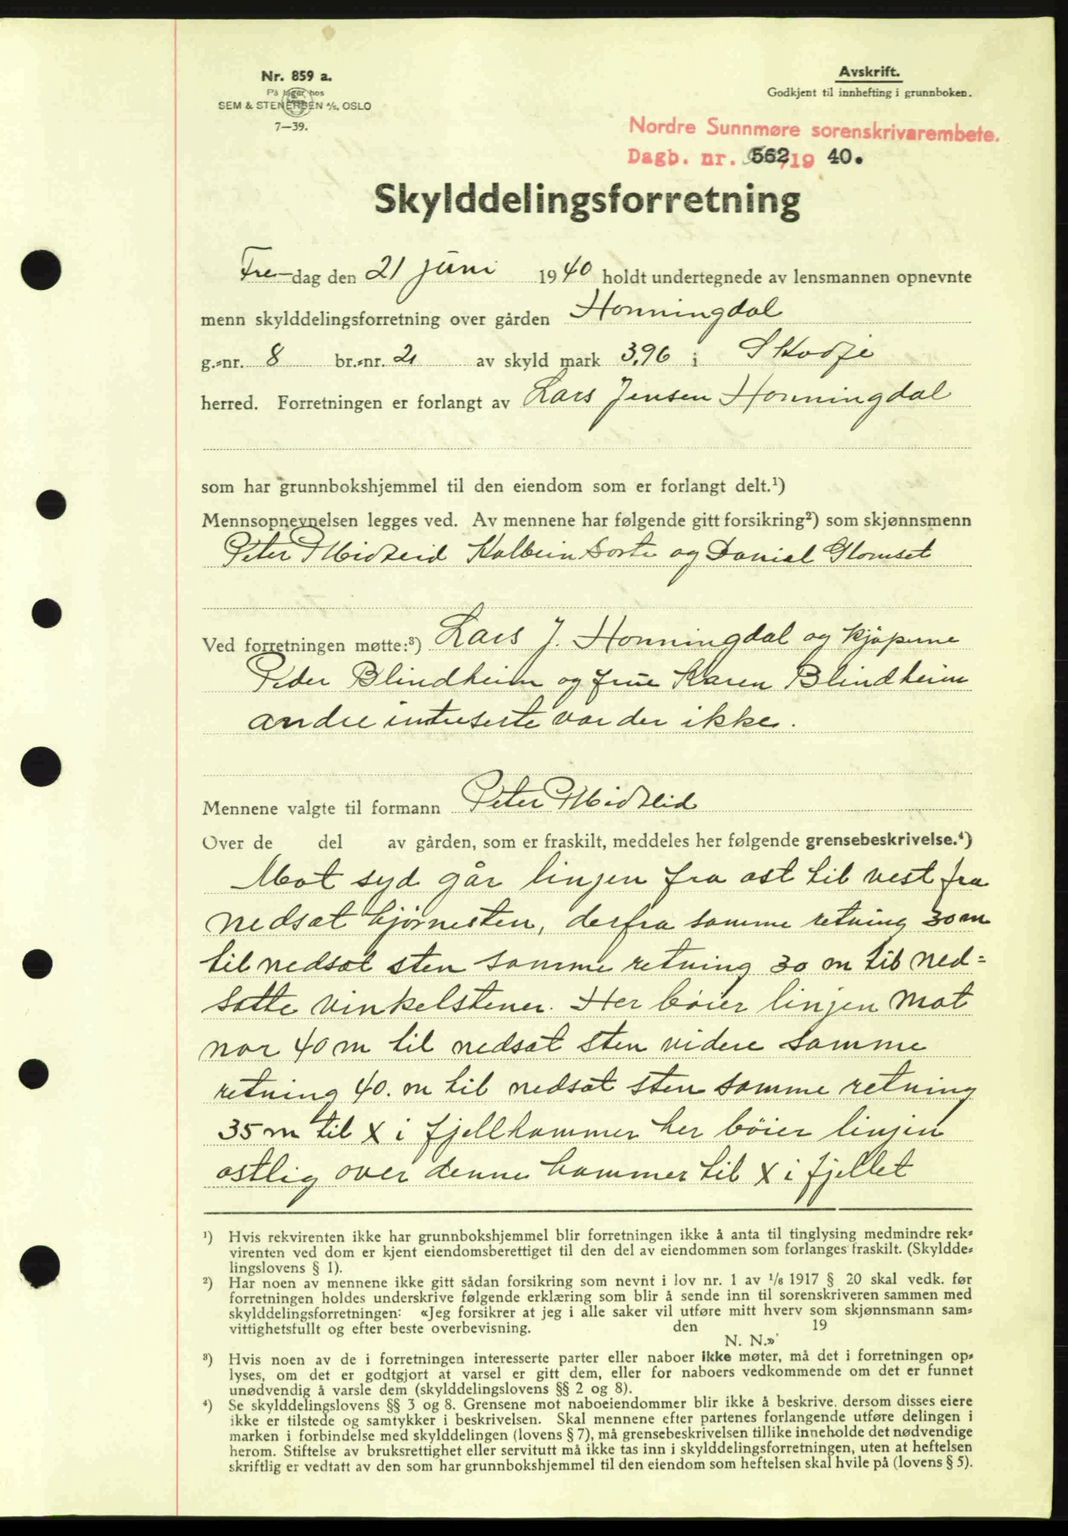 Nr. 859 a.
På lager hos
SEM & STENERSEN A/S, OSLO
7—39.
Avskrift.
Godkjent til innhefting i grunnboken.
Nordre Sunnmøre sorenskrivarembete.
Dagb. nr. 562/19 40.
Skylddelingsforretning
Fre-dag den 21 juni 1940 holdt undertegnede av lensmannen opnevnte
menn skylddelingsforretning over gården Honningdal
g.-nr. 8 br.-nr. 2 av skyld mark 3,96 i Skodje
herred. Forretningen er forlangt av Lars Jensen Honningdal
som har grunnbokshjemmel til den eiendom som er forlangt delt.¹)
Mennsopnevnelsen legges ved. Av mennene har følgende gitt forsikring²) som skjønnsmenn
Peter Midteid Kolbein Sorte og Daniel Glomset
Ved forretningen møtte:³) Lars J. Honningdal og kjøperne
Peder Blindheim og frue Karen Blindheim
andre intreserte var der ikke.
Mennene valgte til formann Peter Midteid
Over de del av gården, som er fraskilt, meddeles her følgende grensebeskrivelse.⁴)
Mot syd går linjen fra ost til vest fra
nedsat hjørnesten, derfra samme retning 30 m
til nedsat sten samme retning 30 m til ned=
satte vinkelstener. Her bøier linjen mot
nor 40 m til nedsat sten videre samme
retning 40. m til nedsat sten samme retning
35 m til X i fjellhammer her bøier linjen
ostlig over denne hammer til X i fjellet
¹) Hvis rekvirenten ikke har grunnbokshjemmel blir forretningen ikke å anta til tinglysing medmindre rek-
virenten ved dom er kjent eiendomsberettiget til den del av eiendommen som forlanges fraskilt. (Skyldde-
lingslovens § 1).
²) Har noen av mennene ikke gitt sådan forsikring som nevnt i lov nr. 1 av 1/6 1917 § 20 skal vedk. før
forretningen holdes underskrive følgende erklæring som blir å sende inn til sorenskriveren sammen med
skylddelingsforretningen: «Jeg forsikrer at jeg i alle saker vil utføre mitt hverv som skjønnsmann sam-
vittighetsfullt og efter beste overbevisning. den 19
N. N.»
³) Hvis noen av de i forretningen interesserte parter eller naboer ikke møter, må det i forretningen op-
lyses, om det er godtgjort at varsel er gitt dem, eller for naboers vedkommende om det er funnet
unødvendig å varsle dem (skylddelingslovens §§ 2 og 8).
⁴) Se skylddelingslovens §§ 3 og 8. Grensene mot naboeiendommer blir ikke å beskrive, dersom disses eiere
ikke er tilstede og samtykker i beskrivelsen. Skal mennene efter partenes forlangende utføre delingen i
marken i forbindelse med skylddelingen (lovens § 7), må grensebeskrivelsen tillike inneholde det nødvendige
herom. Stiftelse av bruksrettighet eller servitutt må ikke tas inn i skylddelingsforretningen, uten at heftelsen
skriftlig er vedtatt av den som har grunnbokshjemmel til den eiendom som heftelsen skal hvile på (lovens § 5).